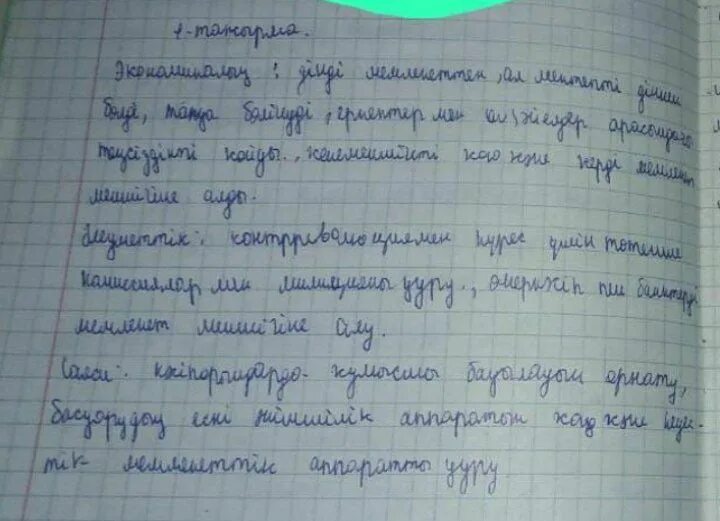 1-тапсырма.
Экономикалық : дінді мемлекеттен, ал мектепті діннен
бөлді, тапқа бөлінуді, еркектер мен әйелдер арасындағы
теңсіздікті жойды., жекеменшікті жою және жерді мемлекет
меншігіне алды.
Әлеуметтік : контрреволюциямен күрес үшін төтенше
комиссиялар мен милицияны құру., өнеркәсіп пен банктерді
мемлекет меншігіне алу.
Саяси : кәсіпорындарда жұмысшы бақылауын орнату,
басқарудың ескі жүйесінің аппаратын жою және кеңес-
тік мемлекеттік аппаратты құру